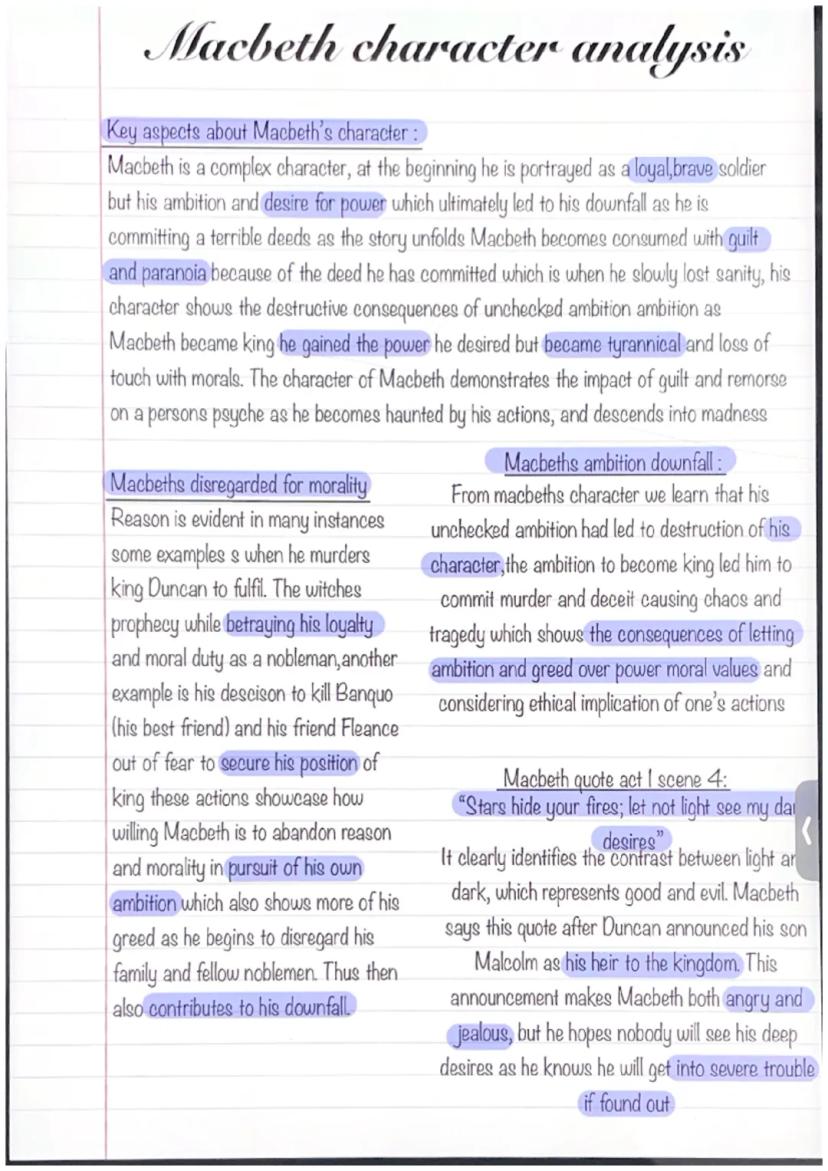 Macbeth character analysis
Key aspects about Macbeth's character :
Macbeth is a complex character, at the beginning he is portrayed as a loyal,brave soldier
but his ambition and desire for power which ultimately led to his downfall as he is
committing a terrible deeds as the story unfolds Macbeth becomes consumed with guilt
and paranoia because of the deed he has committed which is when he slowly lost sanity, his
character shows the destructive consequences of unchecked ambition ambition as
Macbeth became king he gained the power he desired but became tyrannical and loss of
touch with morals. The character of Macbeth demonstrates the impact of guilt and remorse
on a persons psyche as he becomes haunted by his actions, and descends into madness
Macbeths disregarded for morality
Reason is evident in many instances
some examples s when he murders
king Duncan to fulfil. The witches
prophecy while betraying his loyalty
and moral duty as a nobleman,another
example is his descison to kill Banquo
(his best friend) and his friend Fleance
out of fear to secure his position of
king these actions showcase how
willing Macbeth is to abandon reason
and morality in pursuit of his own
ambition which also shows more of his
greed as he begins to disregard his
family and fellow noblemen. Thus then
also contributes to his downfall.
Macbeths ambition downfall :
From macbeths character we learn that his
unchecked ambition had led to destruction of his
character,the ambition to become king led him to
commit murder and deceit causing chaos and
tragedy which shows the consequences of letting
ambition and greed over power moral values and
considering ethical implication of one's actions
Macbeth quote act 1 scene 4:
"Stars hide your fires; let not light see my
desires"
It clearly identifies the contrast between light
dark, which represents good and evil. Macbeth
says this quote after Duncan announced his son
Malcolm as his heir to the kingdom. This
announcement makes Macbeth both angry and
jealous, but he hopes nobody will see his deep
desires as he knows he will get into severe trouble
if found out